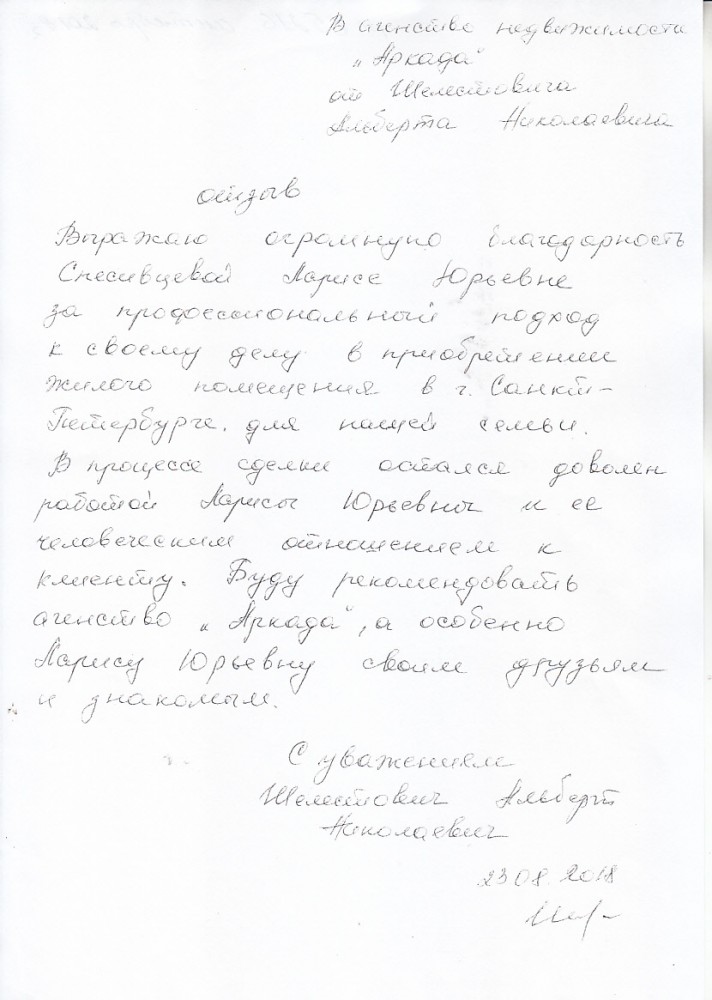 В агенство недвижимости
„Аркада"
от Шелестовича
Альберта Николаевича
отзыв
Выражаю огромную благодарность
Спесивцевой Ларисе Юрьевне
за профессиональный подход
к своему делу в приобретении
жилого помещения в г. Санкт-
Петербурге. для нашей семьи.
В процессе сделки остался доволен
работой Ларисы Юрьевны и ее
человеческим отношением к
клиенту. Буду рекомендовать
агенство „Аркада", а особенно
Ларису Юрьевну своим друзьям
и знакомым.
С уважением
Шелестович Альберт
Николаевич
23 08. 2018